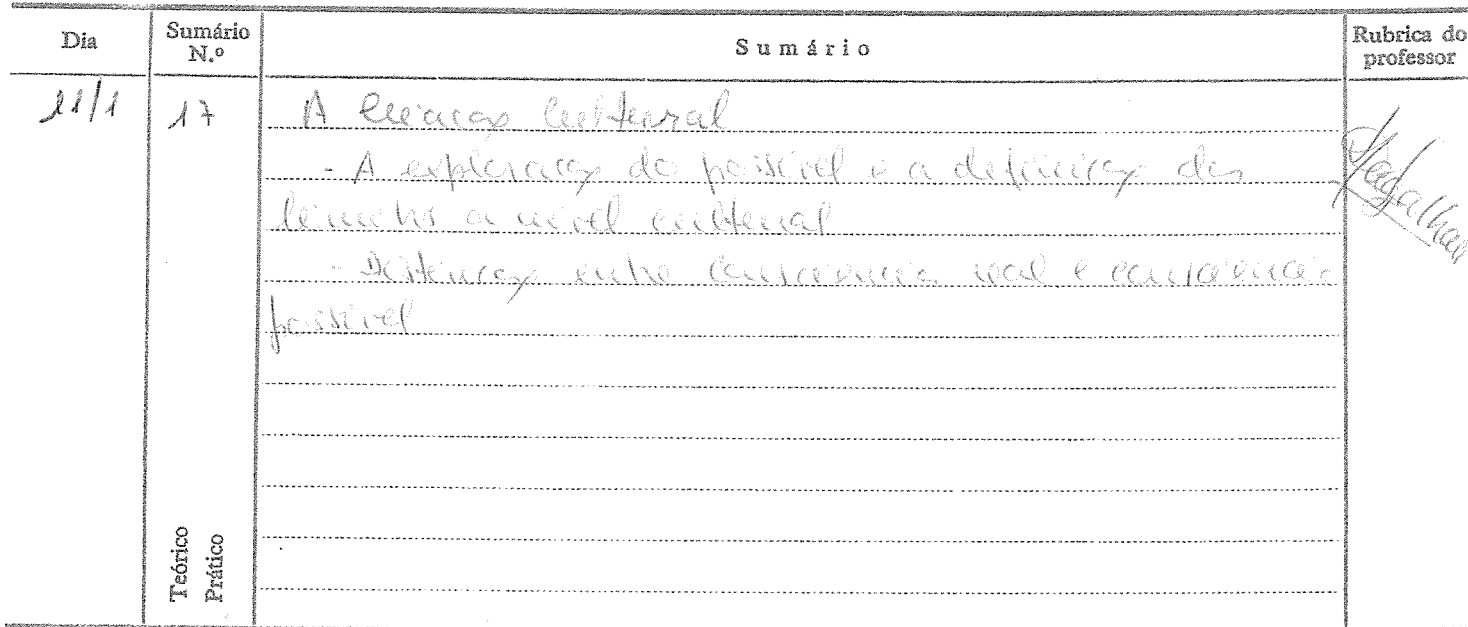 Dia
Sumário N.º
Sumário
Rubrica do professor
11/1
17
A criação cultural
- A exploração do possível e a definição dos
limites a nível cultural
- Distinção entre consciência real e consciência
possível
Teórico
Prático